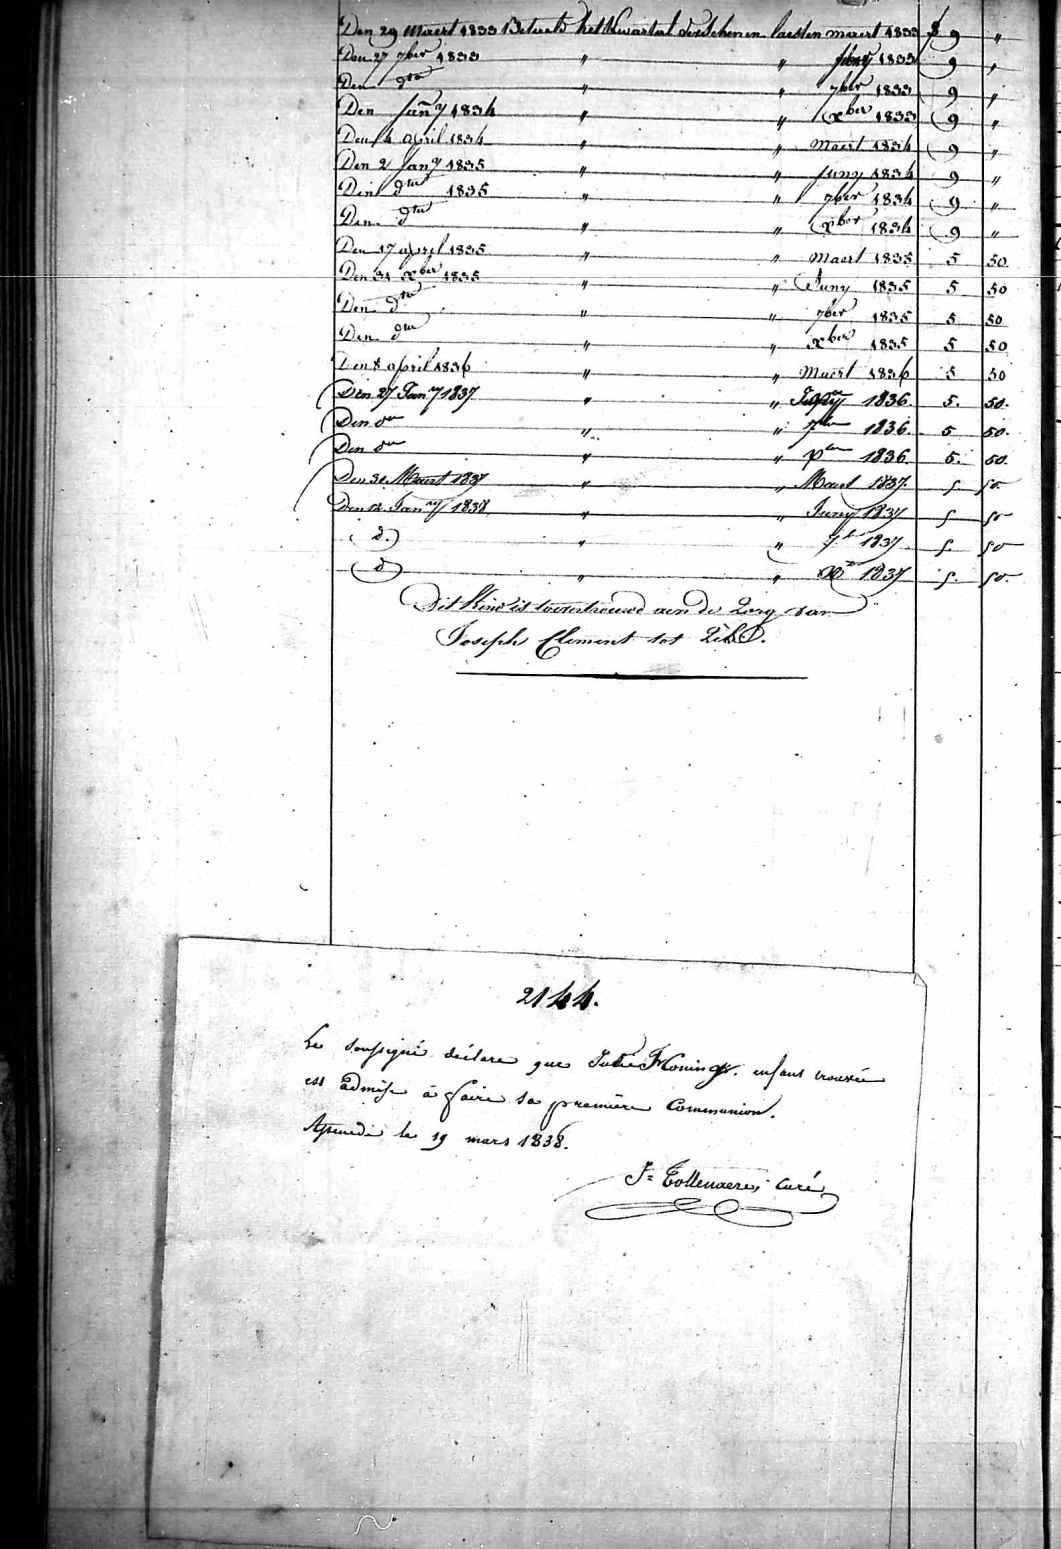 Den 29 Maert 1833 Betaeld het Kwartael verschenen laesten maert 1833 9 "
Den 27 7ber 1833 " " Juny 1833 9 "
Den dto " " 7ber 1833 9 "
Den Jany 1834 " " xber 1833 9 "
Den 4 april 1834 " " Maert 1834 9 "
Den 2 Jany 1835 " " Juny 1834 9 "
Den dto 1835 " " 7ber 1834 9 "
Den dto " " xber 1834 9 "
Den 17 april 1835 " " Maert 1835 5 50
Den 31 xber 1835 " " Juny 1835 5 50
Den dto " " 7ber 1835 5 50
Den dto " " xber 1835 5 50
Den 8 april 1836 " " Maert 1836 5 50
Den 27 Jany 1837 " " 1836. 5. 50.
Den do " " 7ber 1836. 5 50.
Den do " " xber 1836. 5. 50.
Den 31. Maert 1837 " " Maert 1837. 5. 50
Den 12 Jany 1838 " " Juny 1837 5 50
d.) " " 7r 1837 5. 50
(d) " " Xr 1837 5. 50
Dit Kind is toevertrouwd aen de Zorg van
Joseph Clement tot
2144.
Le soussigné déclare que Julie Honing. enfant trouvée
est admise à faire sa première Communion.
le 19 mars 1838.
J= Tollenaere, Curé